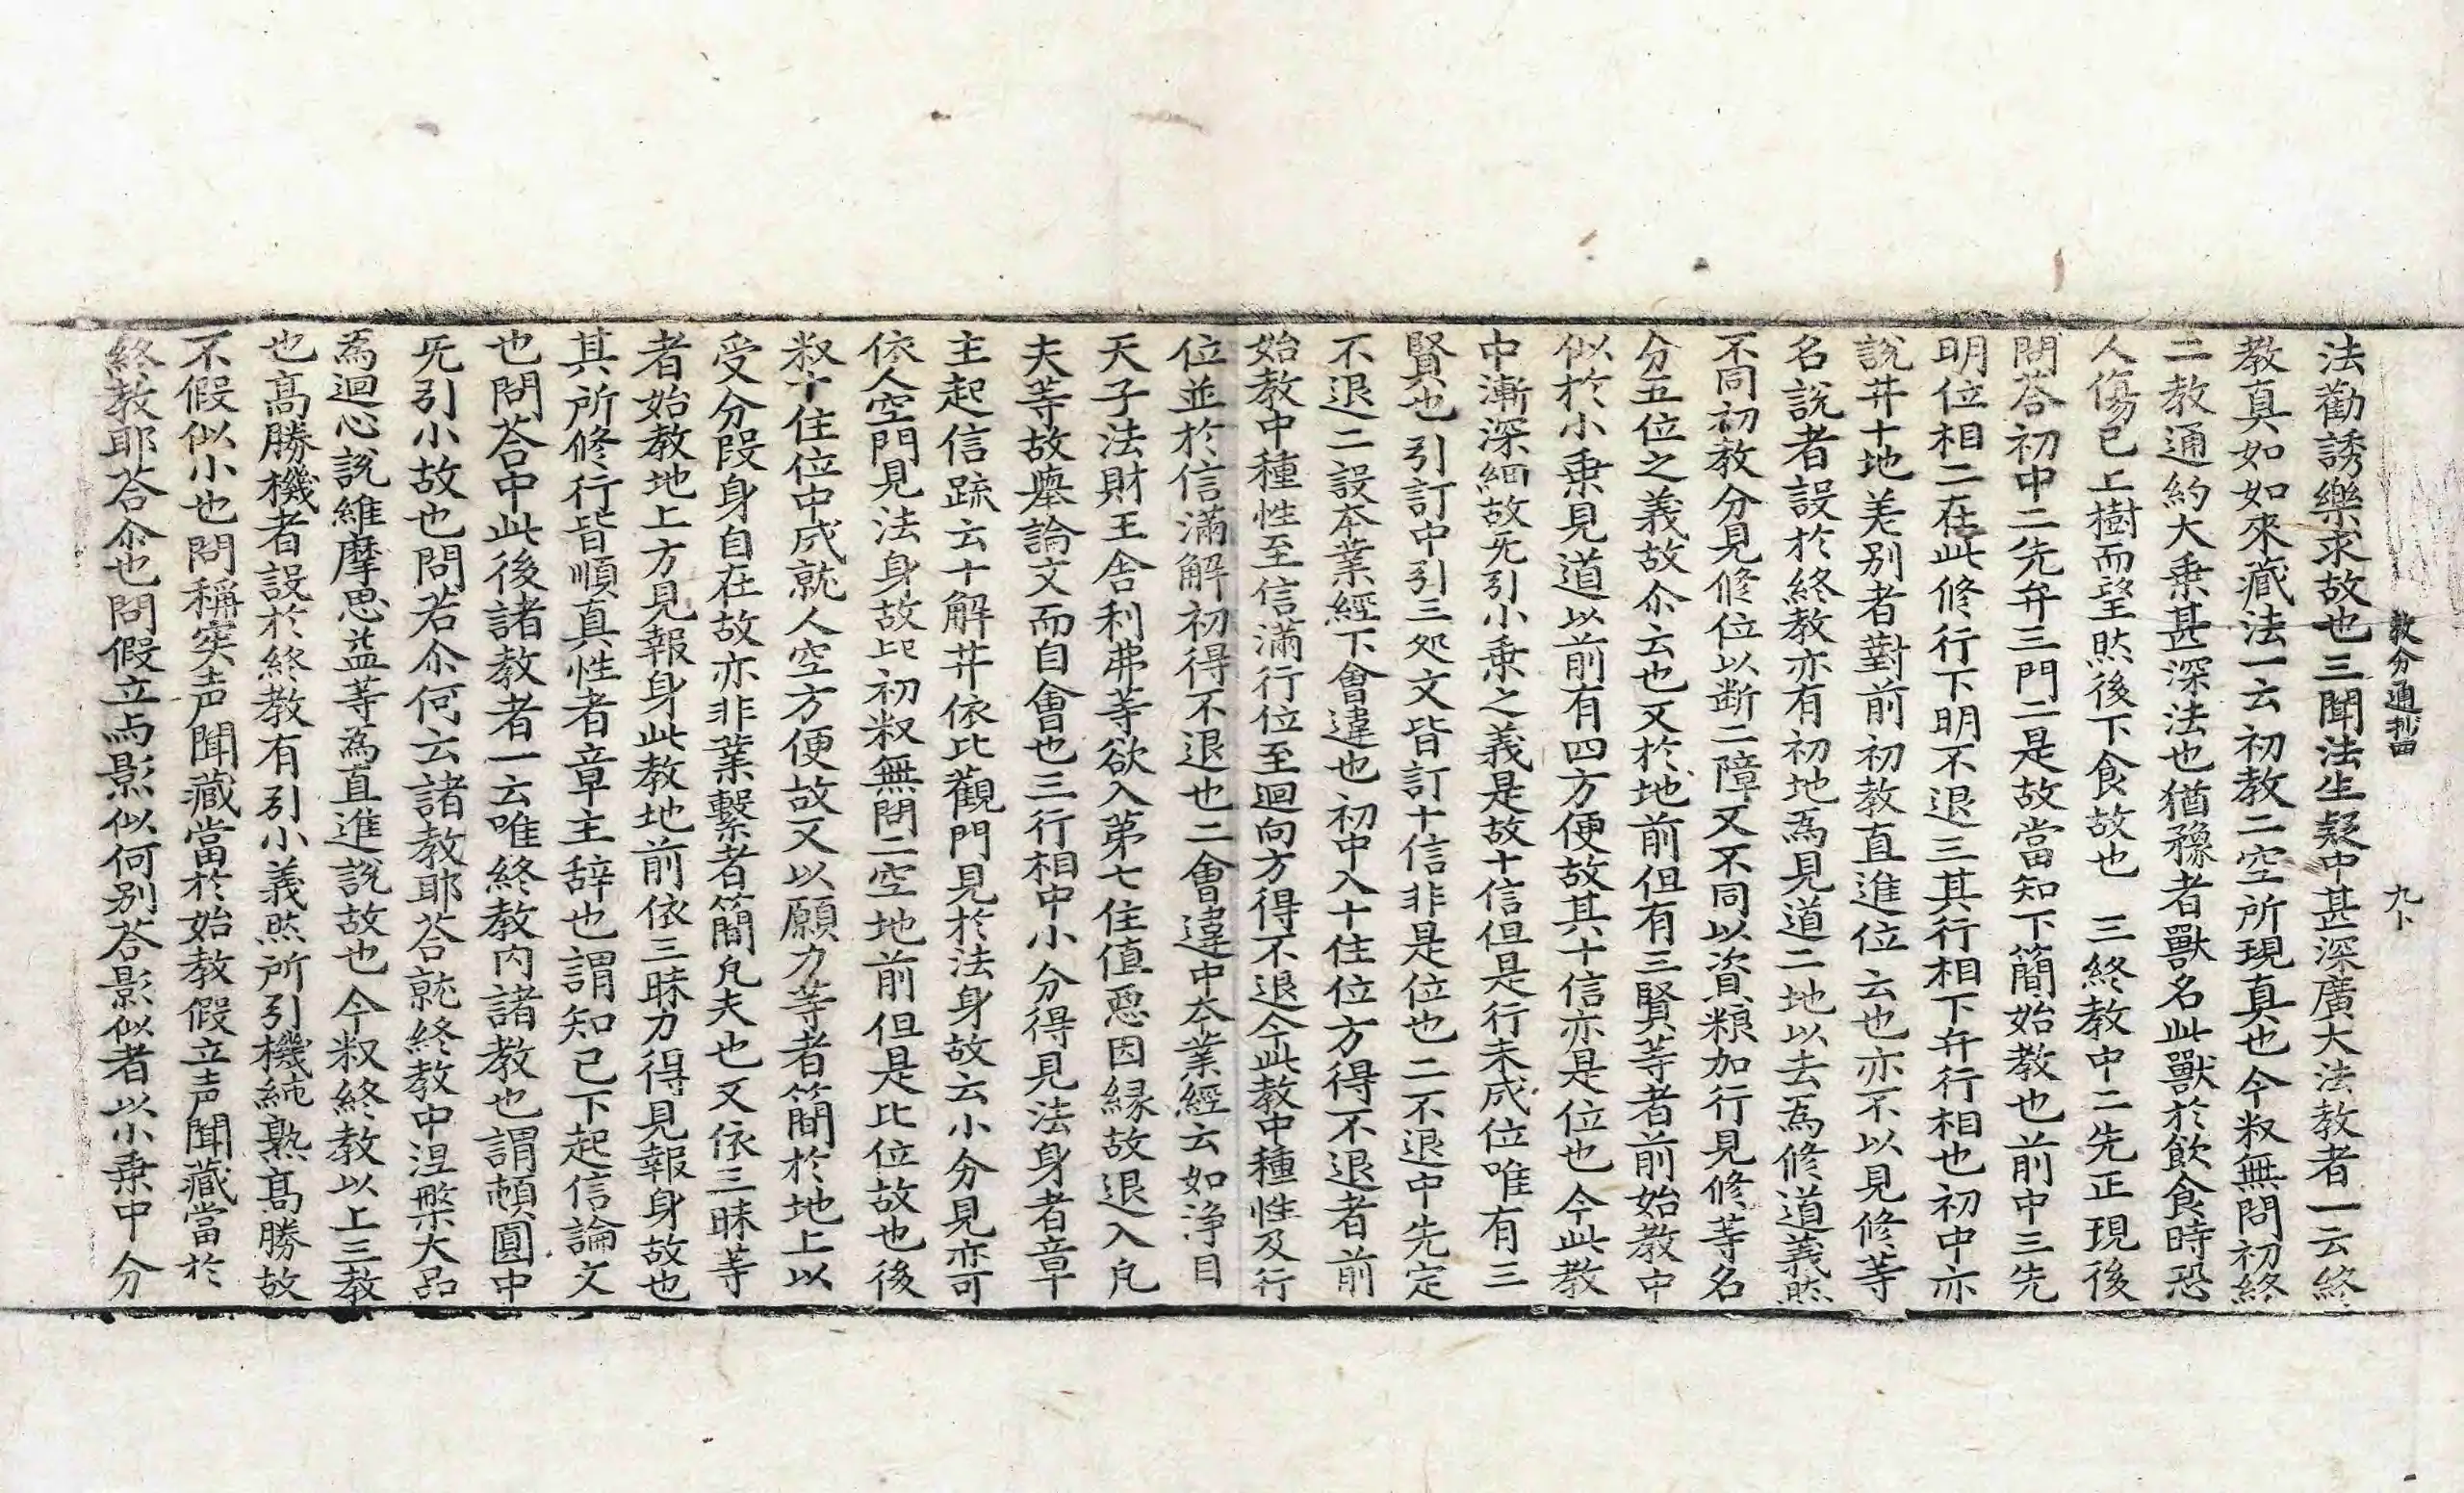 教分通抄四 九卜
法勸誘樂求故也三聞法生疑中甚深廣大法教者一云終
教真如如來藏法一云初教二空所現真也今叙無問初終
二教通約大乗甚深法也猶豫者獸名此獸於飲食時恐
人傷已上樹而望然後下食故也 三終教中二先正現後
問荅初中二先弁三門二是故當知下簡始教也前中三先
明位相二在此修行下明不退三其行相下弁行相也初中亦
說井十地差別者對前初教直進位云也亦不以見修等
名說者設於終教亦有初地為見道二地以去為修道義然
不同初教分見修位以断二障又不同以資粮加行見修等名
分五位之義故尒云也又於地前但有三賢等者前始教中
似於小乗見道以前有四方便故其十信亦是位也今此教
中漸深細故旡引小乗之義是故十信但是行未成位唯有三
賢也引訂中引三処文皆訂十信非是位也二不退中先定
不退二設夲業經下會違也初中入十住位方得不退者前
始教中種性至信滿行位至迴向方得不退今此教中種性及行
位並於信滿解初得不退也二會違中夲業經云如淨目
天子法財王舍利弗等欲入第七住值惡因緣故退入凡
夫等故舉論文而自會也三行相中小分得見法身者章
主起信䟽云十解井依比觀門見於法身故云小分見亦可
依人空門見法身故此初叙無問二空地前但是比位故也後
叙十住位中成就人空方便故又以願力等者簡於地上以
受分段身自在故亦非業繫者簡凡夫也又依三昧等
者始教地上方見報身此教地前依三昧力得見報身故也
其所修行皆順真性者章主辞也謂知已下起信論文
也問荅中此後諸教者一云唯終教内諸教也謂頓圓中
旡引小故也問若尒何云諸教耶荅就終教中涅槃大品
為迴心說維摩思益等為直進說故也今叙終教以上三教
也髙勝機者設於終教有引小義然所引機純熟髙勝故
不假似小也問稱実声聞藏當於始教假立声聞藏當於
終教耶荅尒也問假立与影似何別荅影似者以小乗中分